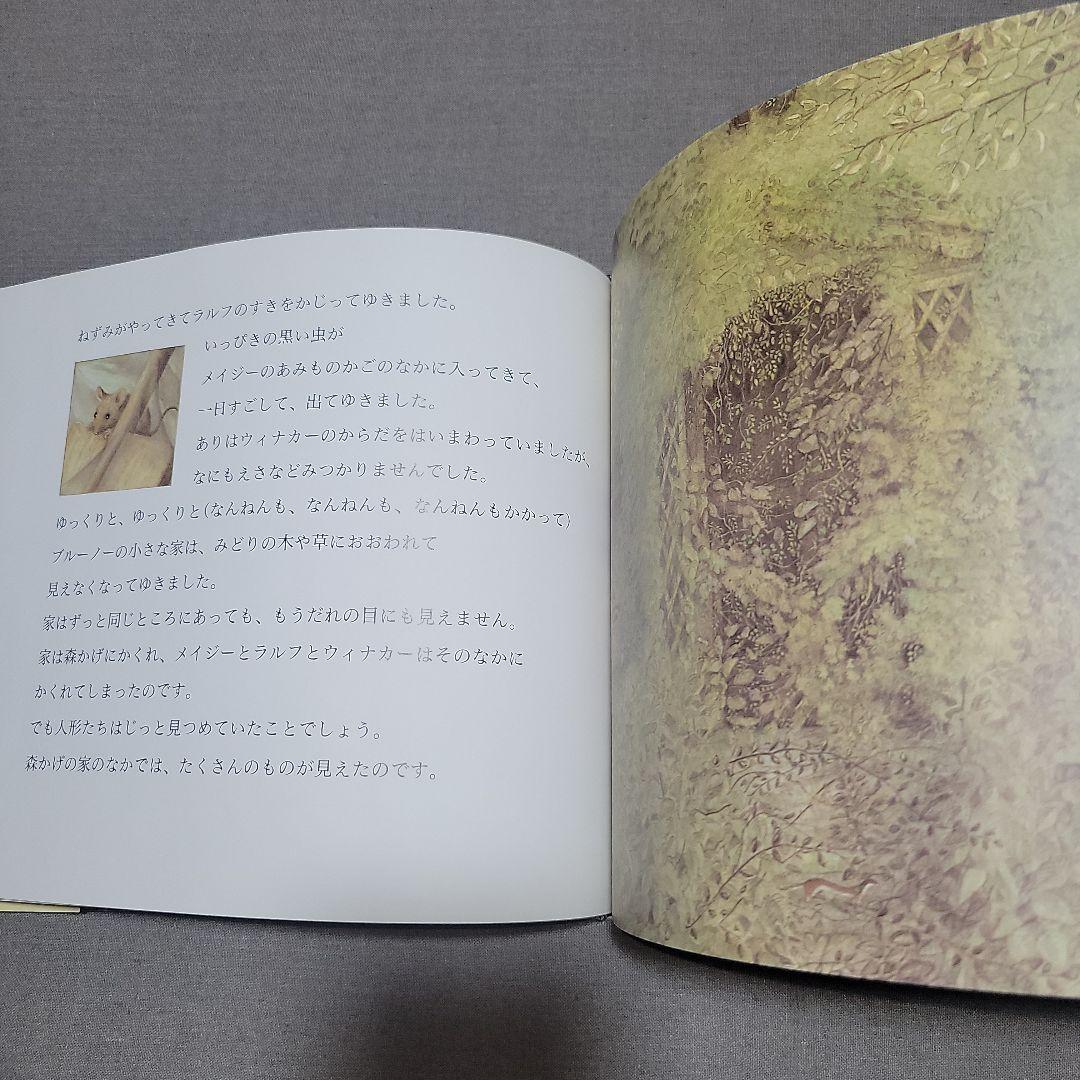 ねずみがやってきてラルフのすきをかじってゆきました。
いっぴきの黒い虫が
メイジーのあみものかごのなかに入ってきて、
一日すごして、出てゆきました。
ありはウィナカーのからだをはいまわっていましたが、
なにもえさなどみつかりませんでした。
ゆっくりと、ゆっくりと(なんねんも、なんねんも、なんねんもかかって)
ブルーノーの小さな家は、みどりの木や草におおわれて
見えなくなってゆきました。
家はずっと同じところにあっても、もうだれの目にも見えません。
家は森かげにかくれ、メイジーとラルフとウィナカーはそのなかに
かくれてしまったのです。
でも人形たちはじっと見つめていたことでしょう。
森かげの家のなかでは、たくさんのものが見えたのです。